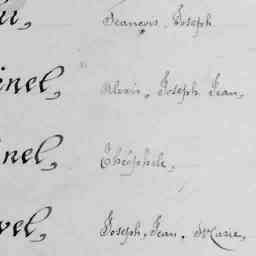 u, François, Joseph
inel, Alexis, Joseph Jean,
nel, Théophile,
vel, Joseph, Jean, Marie,